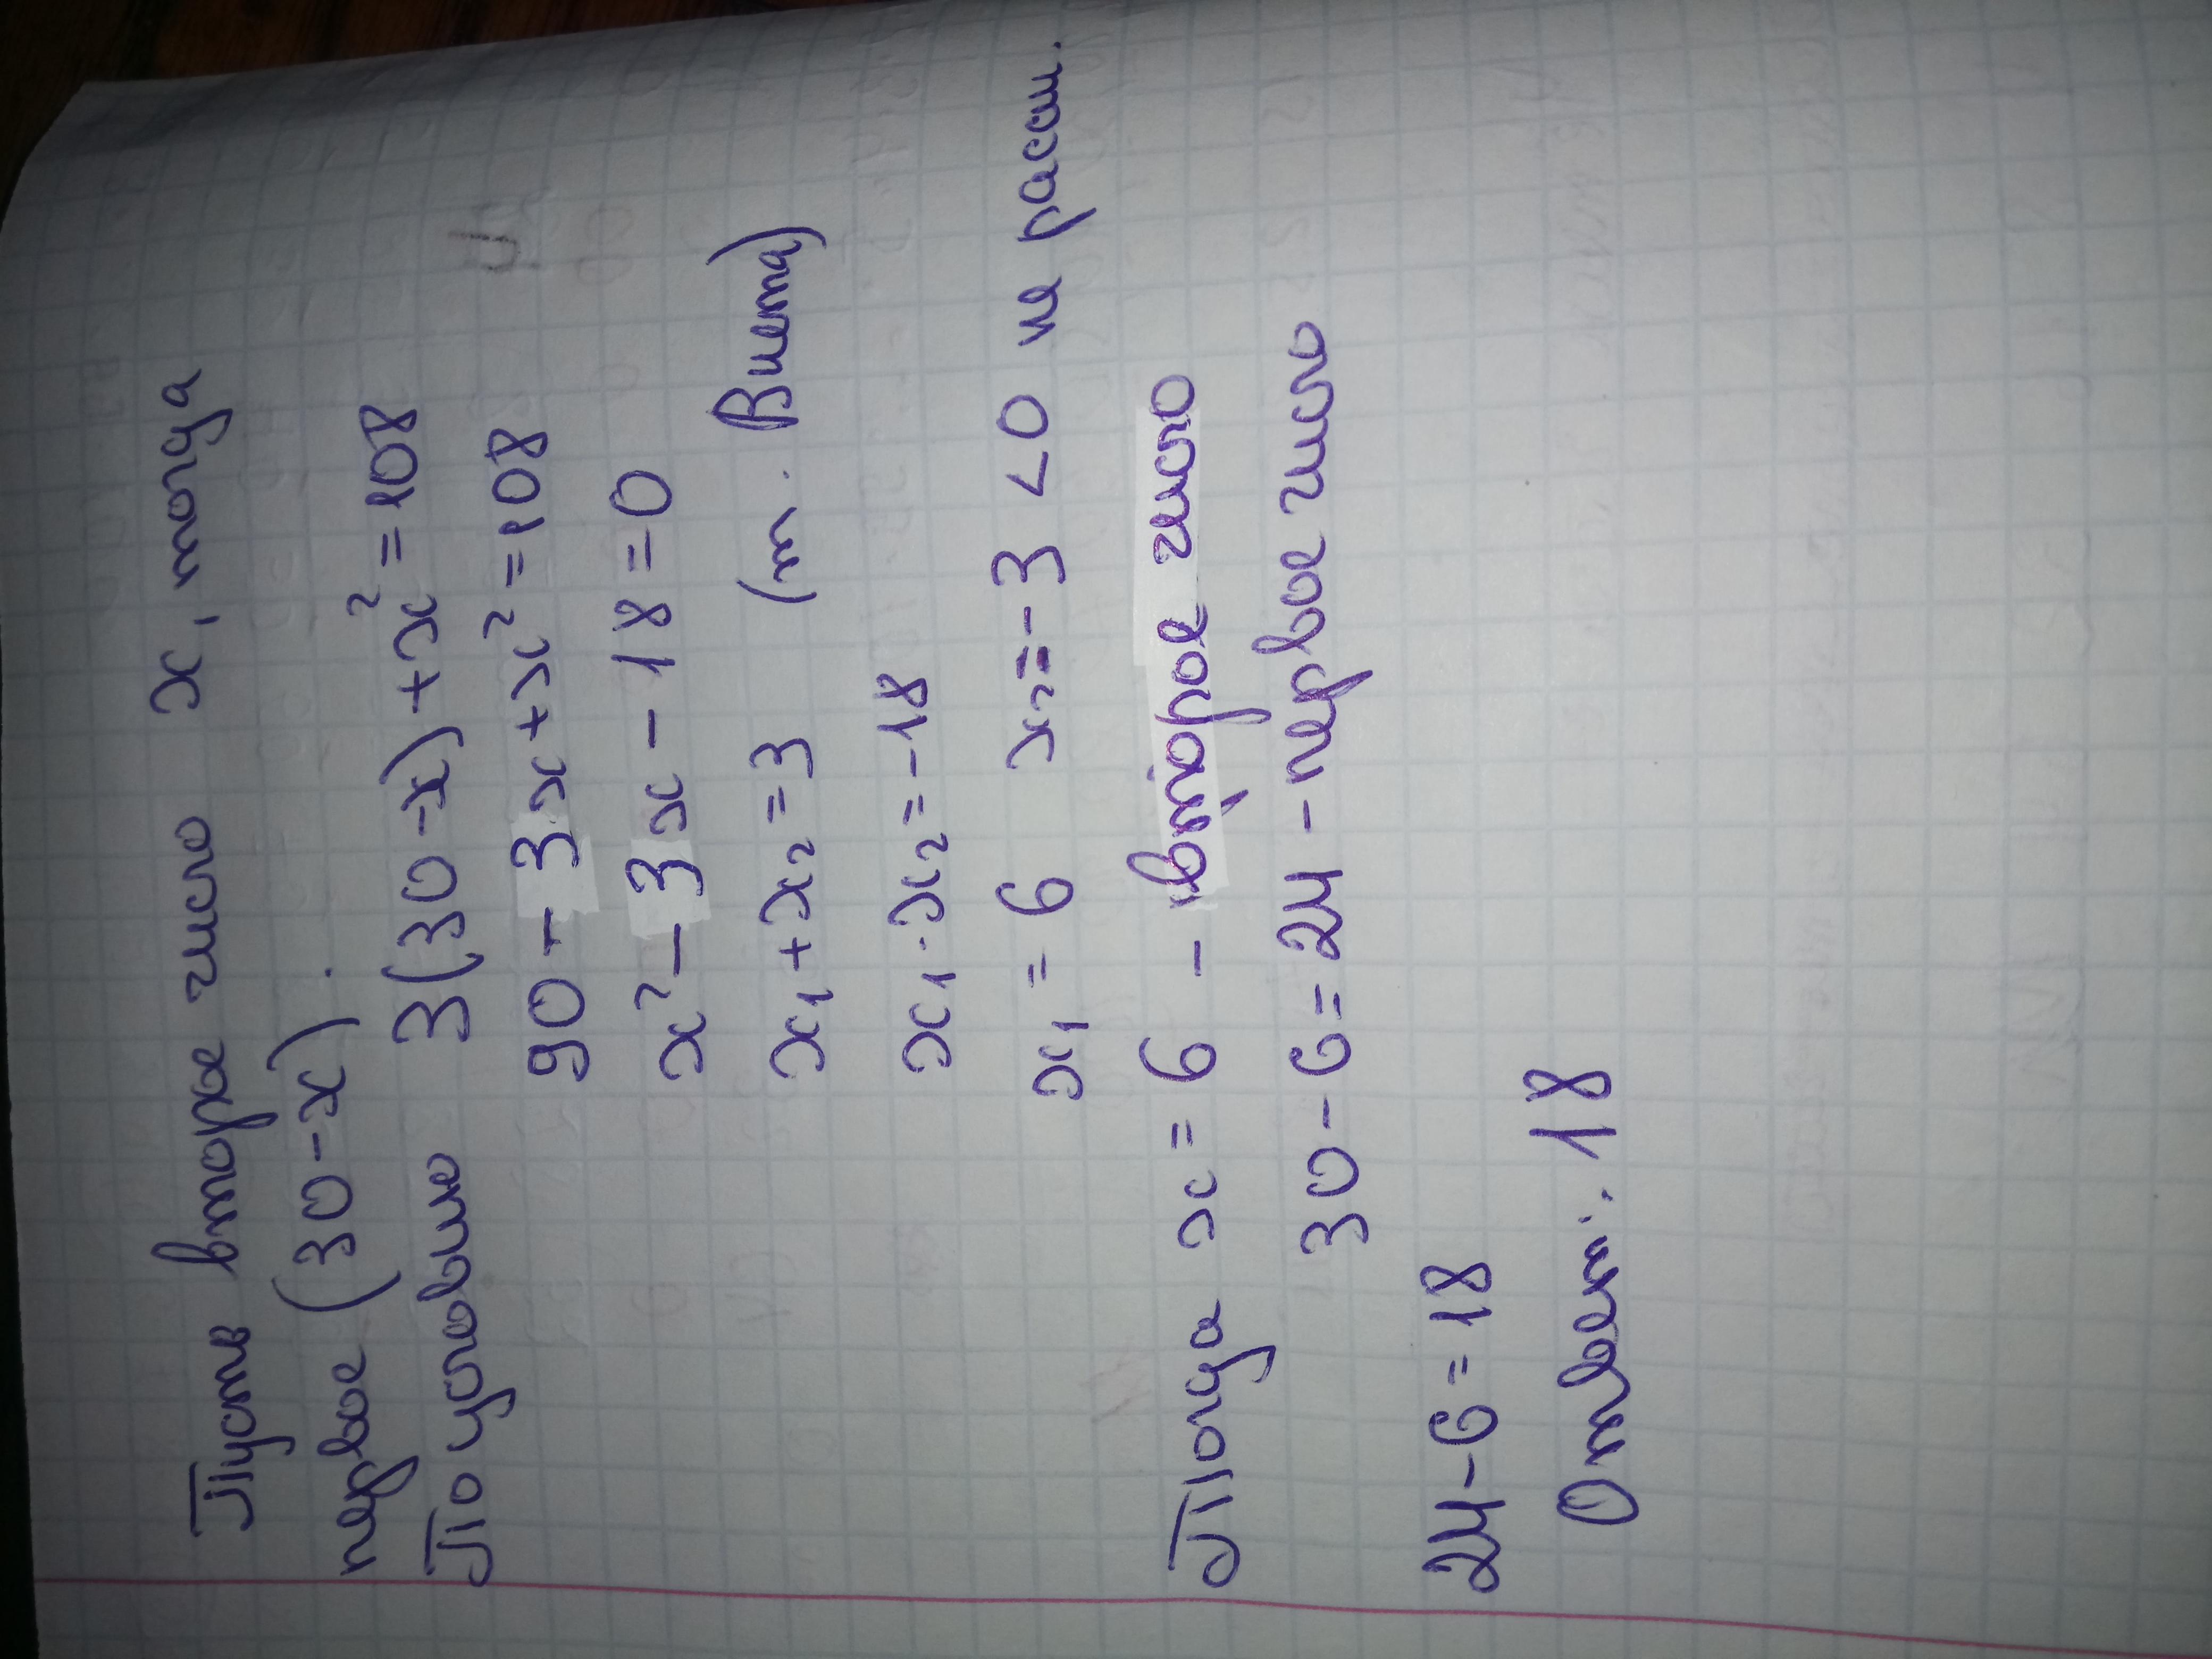 Пусть второе число х, тогда
первое (30-х).
По условию 3(30-х)+х²=108
90-3х+х²=108
х²-3х-18=0
х₁+х₂=3 (т. Виета)
х₁·х₂=-18
х₁=6 х₂=-3<0 не рассм.
Тогда х=6 - второе число
30-6=24-первое число
24-6=18
Ответ: 18